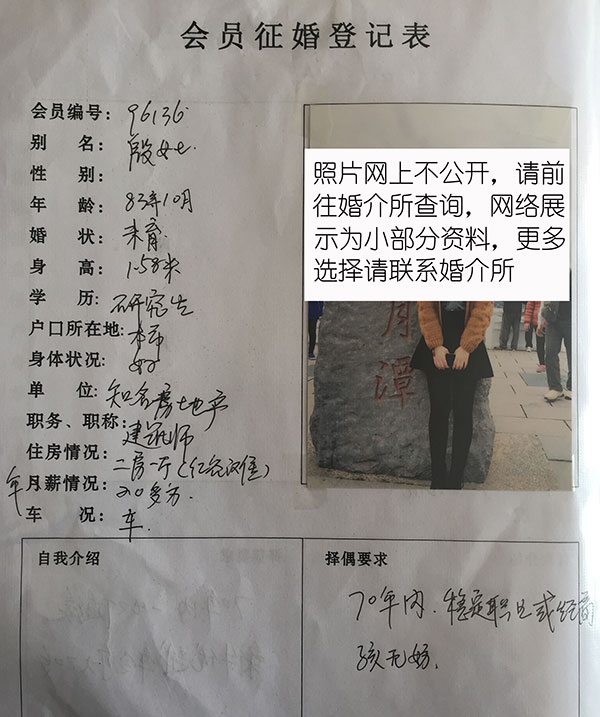 会员征婚登记表
会员编号：96136
别 名：殷女士
性 别：
年 龄：83年10月
婚 状：未育
身 高：1.58米
学 历：研究生
户口所在地：本市
身体状况：好
单 位：知名房地产
职务、职称：建筑师
住房情况：二房一厅（红谷滩住）
年月薪情况：20多万.
车 况：车.
照片网上不公开，请前
往婚介所查询，网络展
示为小部分资料，更多
选择请联系婚介所
潭
自我介绍
择偶要求
70年内. 稳定职业或经商
孩无妨.